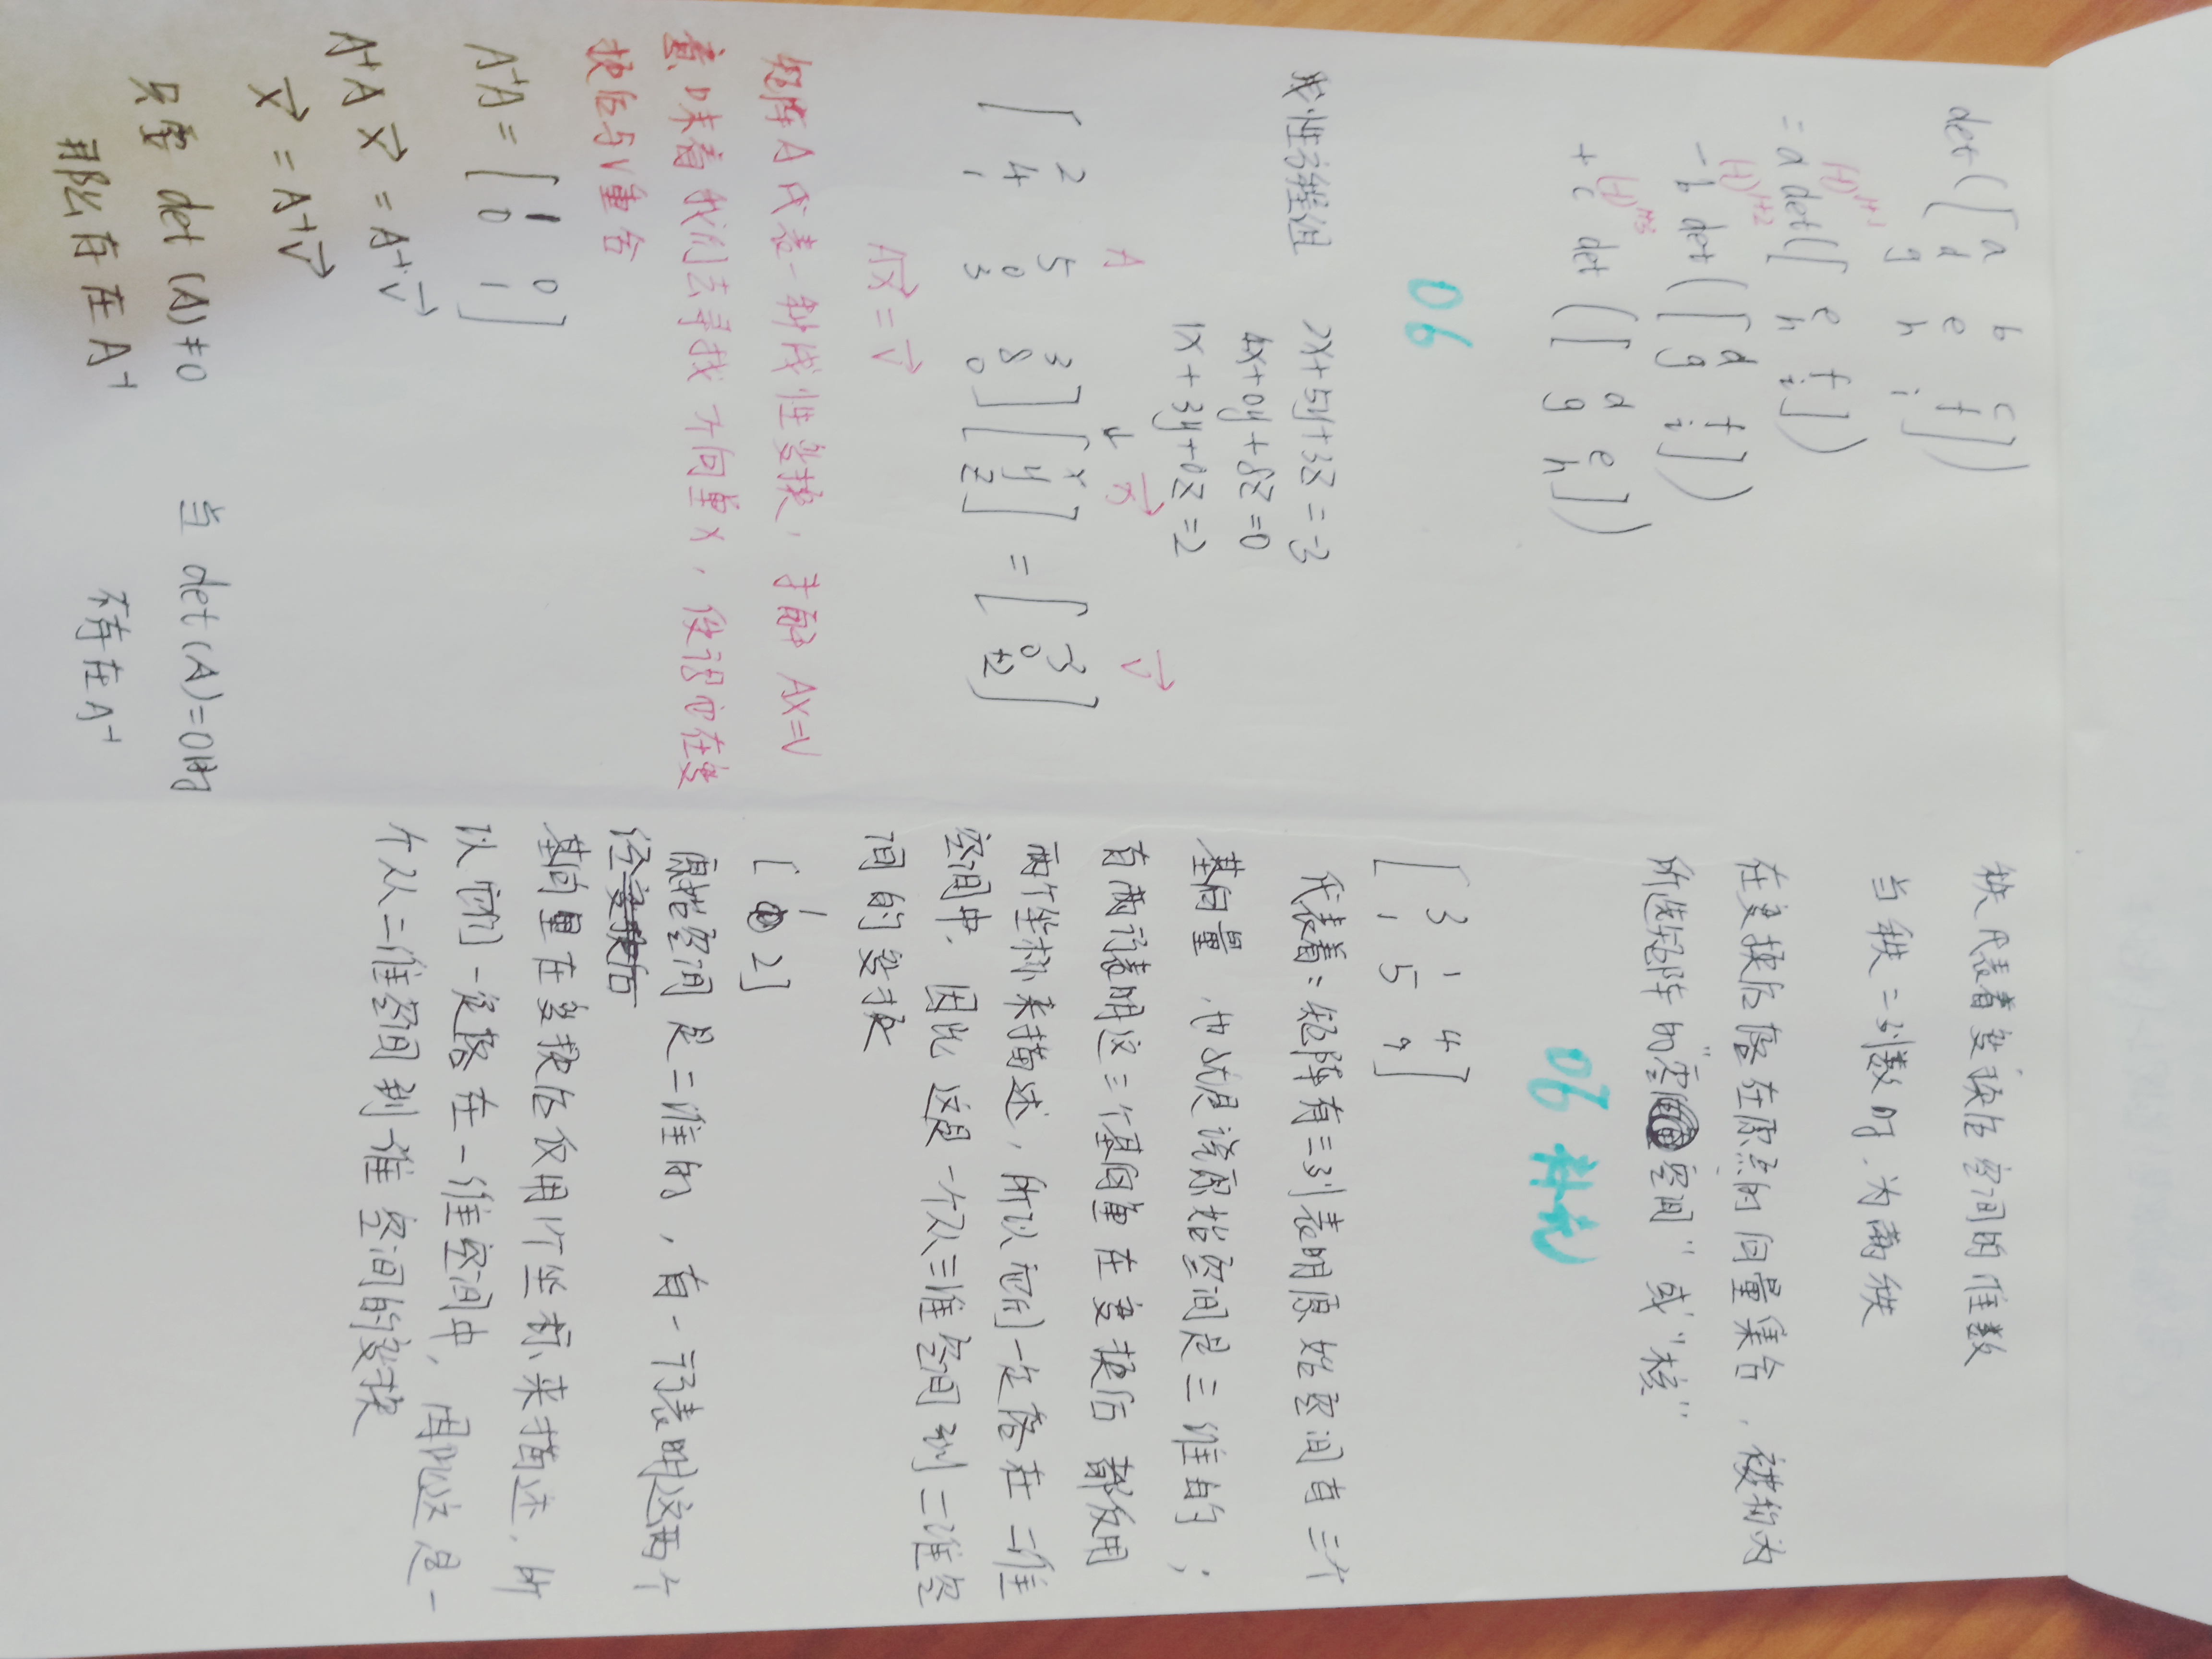 det([a b c
d e f
g h i])
(-1)^{1+1}
=a det([e f
h i])
(-1)^{1+2}
-b det([d f
g i])
(-1)^{1+3}
+c det([d e
g h])
06
线性方程组 2x+5y+3z=-3
4x+0y+8z=0
1x+3y+0z=2
A x⃗ v⃗
[2 5 3
4 0 8
1 3 0][x
y
z] = [-3
0
+2]
Ax⃗=v⃗
矩阵A代表一种线性变换,求解 Ax=v
意味着我们去寻找个向量x,使得它在变
换后与v重合
A⁻¹A=[1 0
0 1]
A⁻¹A x⃗=A⁻¹v⃗
x⃗=A⁻¹v⃗
只管 det(A)≠0 当 det(A)=0时
那么存在A⁻¹ 不存在A⁻¹
秩代表着变换后空间的维数
当秩=列数时,为满秩
在变换后落在原点的向量集合,被称为
所选矩阵的“零空间”或“核”
06 补充
[3 1 4
1 5 9]
代表着:矩阵有三列表明原始空间有三个
基向量,也就是说原始空间是三维的;
有两行表明这三个基向量在变换后都仅用
两个坐标来描述,所以它们一定落在二维
空间中,因此这是一个从三维空间到二维空
间的变换
[1 2]
原始空间是二维的,有一行表明这两个
经变换后
基向量在变换后仅用1个坐标来描述,所
以它们一定落在一维空间中,因此这是一
个从二维空间到一维空间的变换